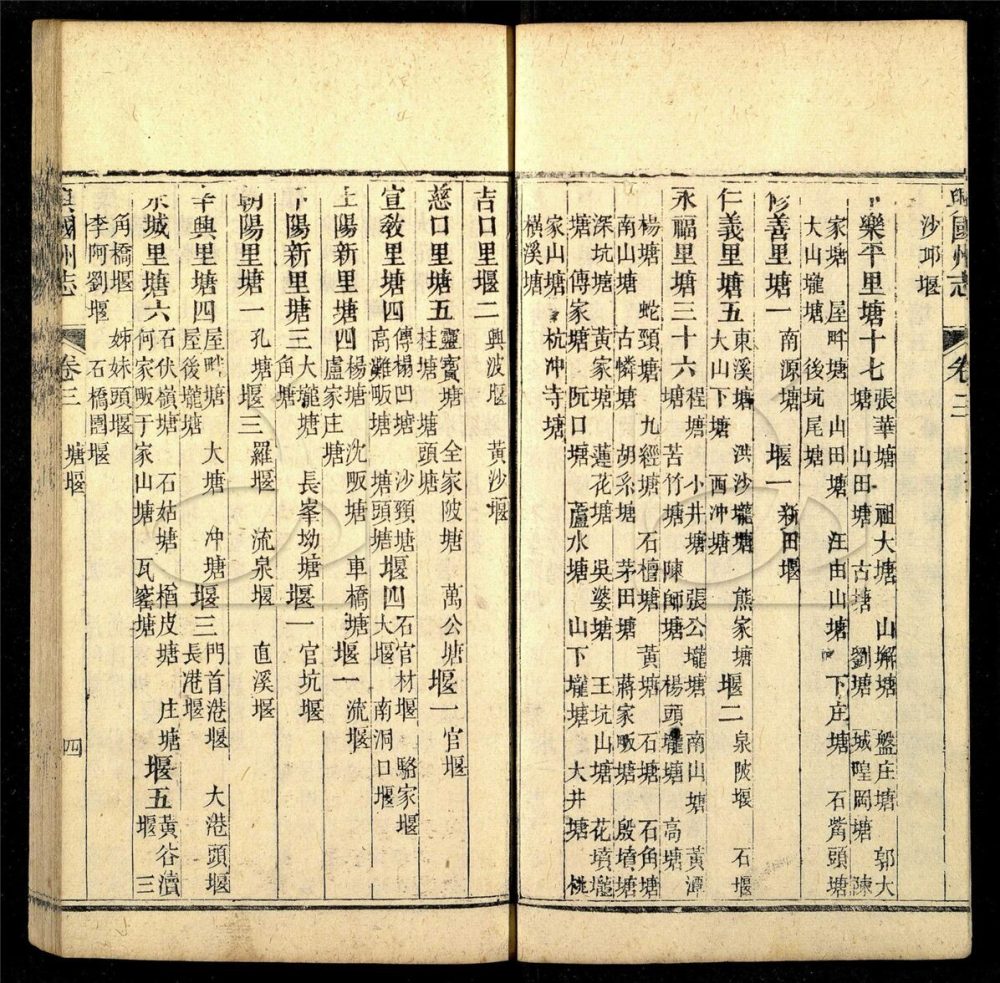 興國州志 卷三
沙邛堰
下樂平里塘十七 張華塘 祖大塘 山塘 盤庄塘 郭大
塘 山田塘 古塘 劉塘 城隍岡塘 陳
家塘 屋畔塘 山田塘 汪由山塘 下庄塘 石觜頭塘
大山壠塘 後坑尾塘
修善里塘一 南源塘 堰一 新田堰
仁義里塘五 東溪塘 洪沙壠塘 熊家塘 堰二 泉陂堰 石堰
大山下塘 西冲塘
永福里塘三十六 程塘 小井塘 張公壠塘 南山塘 黃潭
塘 苦竹塘 陳師塘 楊頭壠塘 高塘
楊塘 蛇頸塘 九經塘 石檀塘 黃塘 石塘 石角塘
南山塘 古憐塘 胡系塘 茅田塘 蔣家畈塘 殷墳塘
深坑塘 黃家塘 蓮花塘 吳婆塘 王坑山塘 花墳壠
塘 傳家塘 阮口塘 蘆水塘 山下壠塘 大井塘 桃
家山塘 杭冲寺塘
橫溪塘
吉口里堰二 興波堰 黃沙堰
慈口里塘五 靈寶塘 全家陂塘 萬公塘 堰一 官堰
柱塘 塘頭塘
宣教里塘四 傅楊凹塘 沙頸塘 堰四 石官材堰 駱家堰
高灘畈塘 塘頭塘 大堰 南洞口堰
上陽新里塘四 楊塘 沈畈塘 車橋塘 堰一 流堰
盧家庄塘
下陽新里塘三 大壠塘 長峯坳塘 堰一 官坑堰
角塘
朝陽里塘一 孔塘 堰三 羅堰 流泉堰 直溪堰
辛興里塘四 屋畔塘 大塘 冲塘 堰三 門首港堰 大港頭堰
屋後壠塘 長港堰
永城里塘六 石伏嶺塘 石姑塘 楢皮塘 庄塘 堰五 黃谷瀆
何家畈于家山塘 瓦窰塘 堰 三
角橋堰 姊妹頭堰
李阿劉堰 石橋團堰
興國州志 卷三 塘堰 四